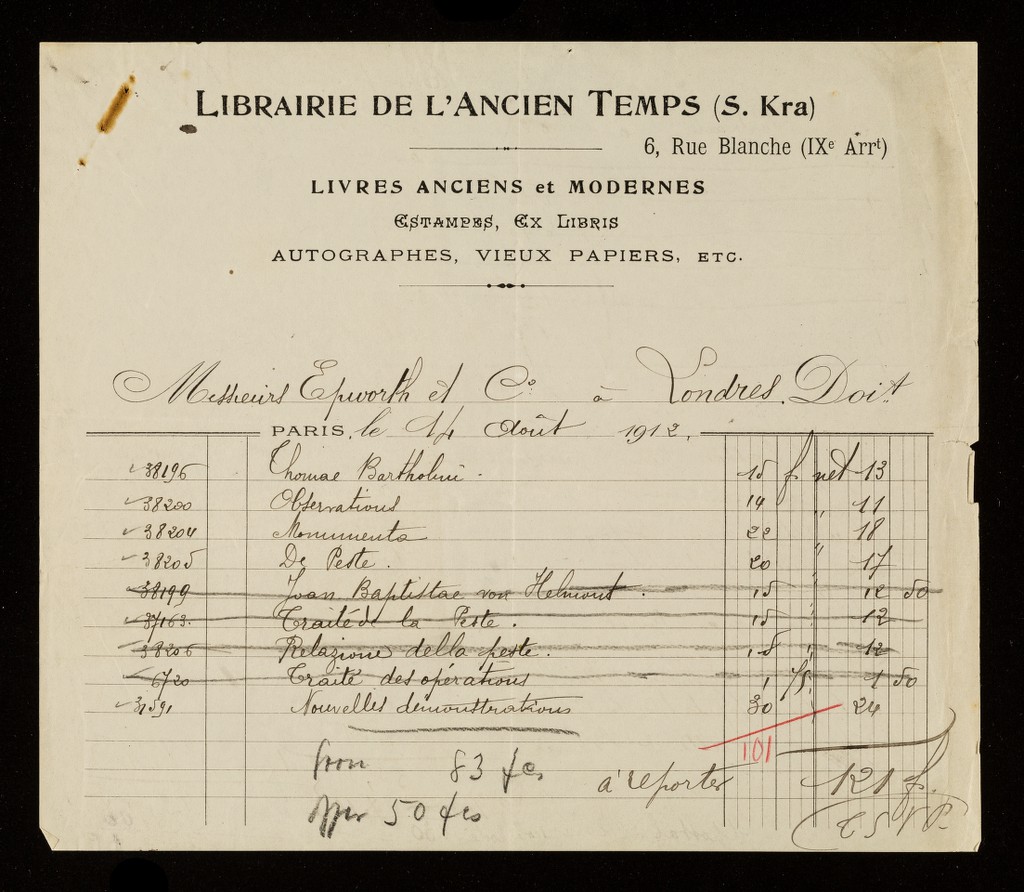 LIBRAIRIE DE L'ANCIEN TEMPS (S. Kra)
6, Rue Blanche (IXe Arrt)
LIVRES ANCIENS et MODERNES
ESTAMPES, EX LIBRIS
AUTOGRAPHES, VIEUX PAPIERS, ETC.
Messieurs Epworth et Co. à Londres. Doit
PARIS, le 14 Août 1912.
38196 Thomae Bartholini. 15 f net 13
38200 Observations 14 " 11
38204 Monumenta 22 18
38205 De Peste. 20 " 17
38199 Joan Baptistae von Helmont. 15 " 12 50
37163. Traité de la Peste. 15 " 12
38206 Relazione della peste. 15 " 12
6720 Traité des opérations 1 75 1 50
31591 Nouvelles démonstrations 30 24
101
from 83 fcs
à reporter 121 f.
offer 50 fcs
T S V P.